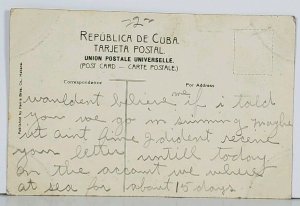 -2-
REPÚBLICA DE CUBA.
TARJETA POSTAL.
UNION POSTALE UNIVERSELLE.
(POST CARD — CARTE POSTALE)
Correspondencia
Por Address
wouldent believe if i told
you we go in swimming maybe
it aint fine I dident recent
your letter untill today
on the account we where
at sea for about 15 days